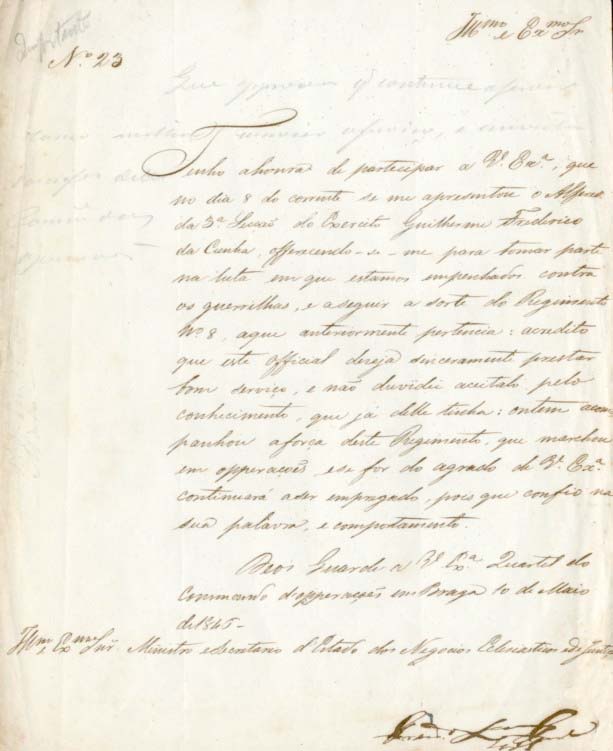 Importante
Illmo e Exmo Sr
N.o 23
Que continue
Tenho ahonra de participar a V.a Exa., que
no dia 8 do corrente se me apresentou o Alferes
da 3a Secção do Exercito Guilherme Frederico
da Cunha, offerecendo-se-me para tomar parte
na luta em que estamos empenhados contra
os guerrilhas, e aseguir a sorte do Regimento
No 8, aque anteriormente pertencia: acredito
que este official deseja sinceramente prestar
bom serviço, e não duvidei aceitalo pelo
conhecimento, que já delle tinha: ontem acom
panhou aforça deste Regimento, que marchou
em opperações, ese for do agrado de V.a Exa.
continuará aser empregado, pois que confio na
sua palavra, e comportamento.
Deos Guarde a V.a Exa. Quartel do
Commando d'opperações em Braga 10 de Maio
de 1846-
Illmo e Exmo Snr. Ministro eSecretario d'Estado dos Negocios Eclesiasticos ede Justiça